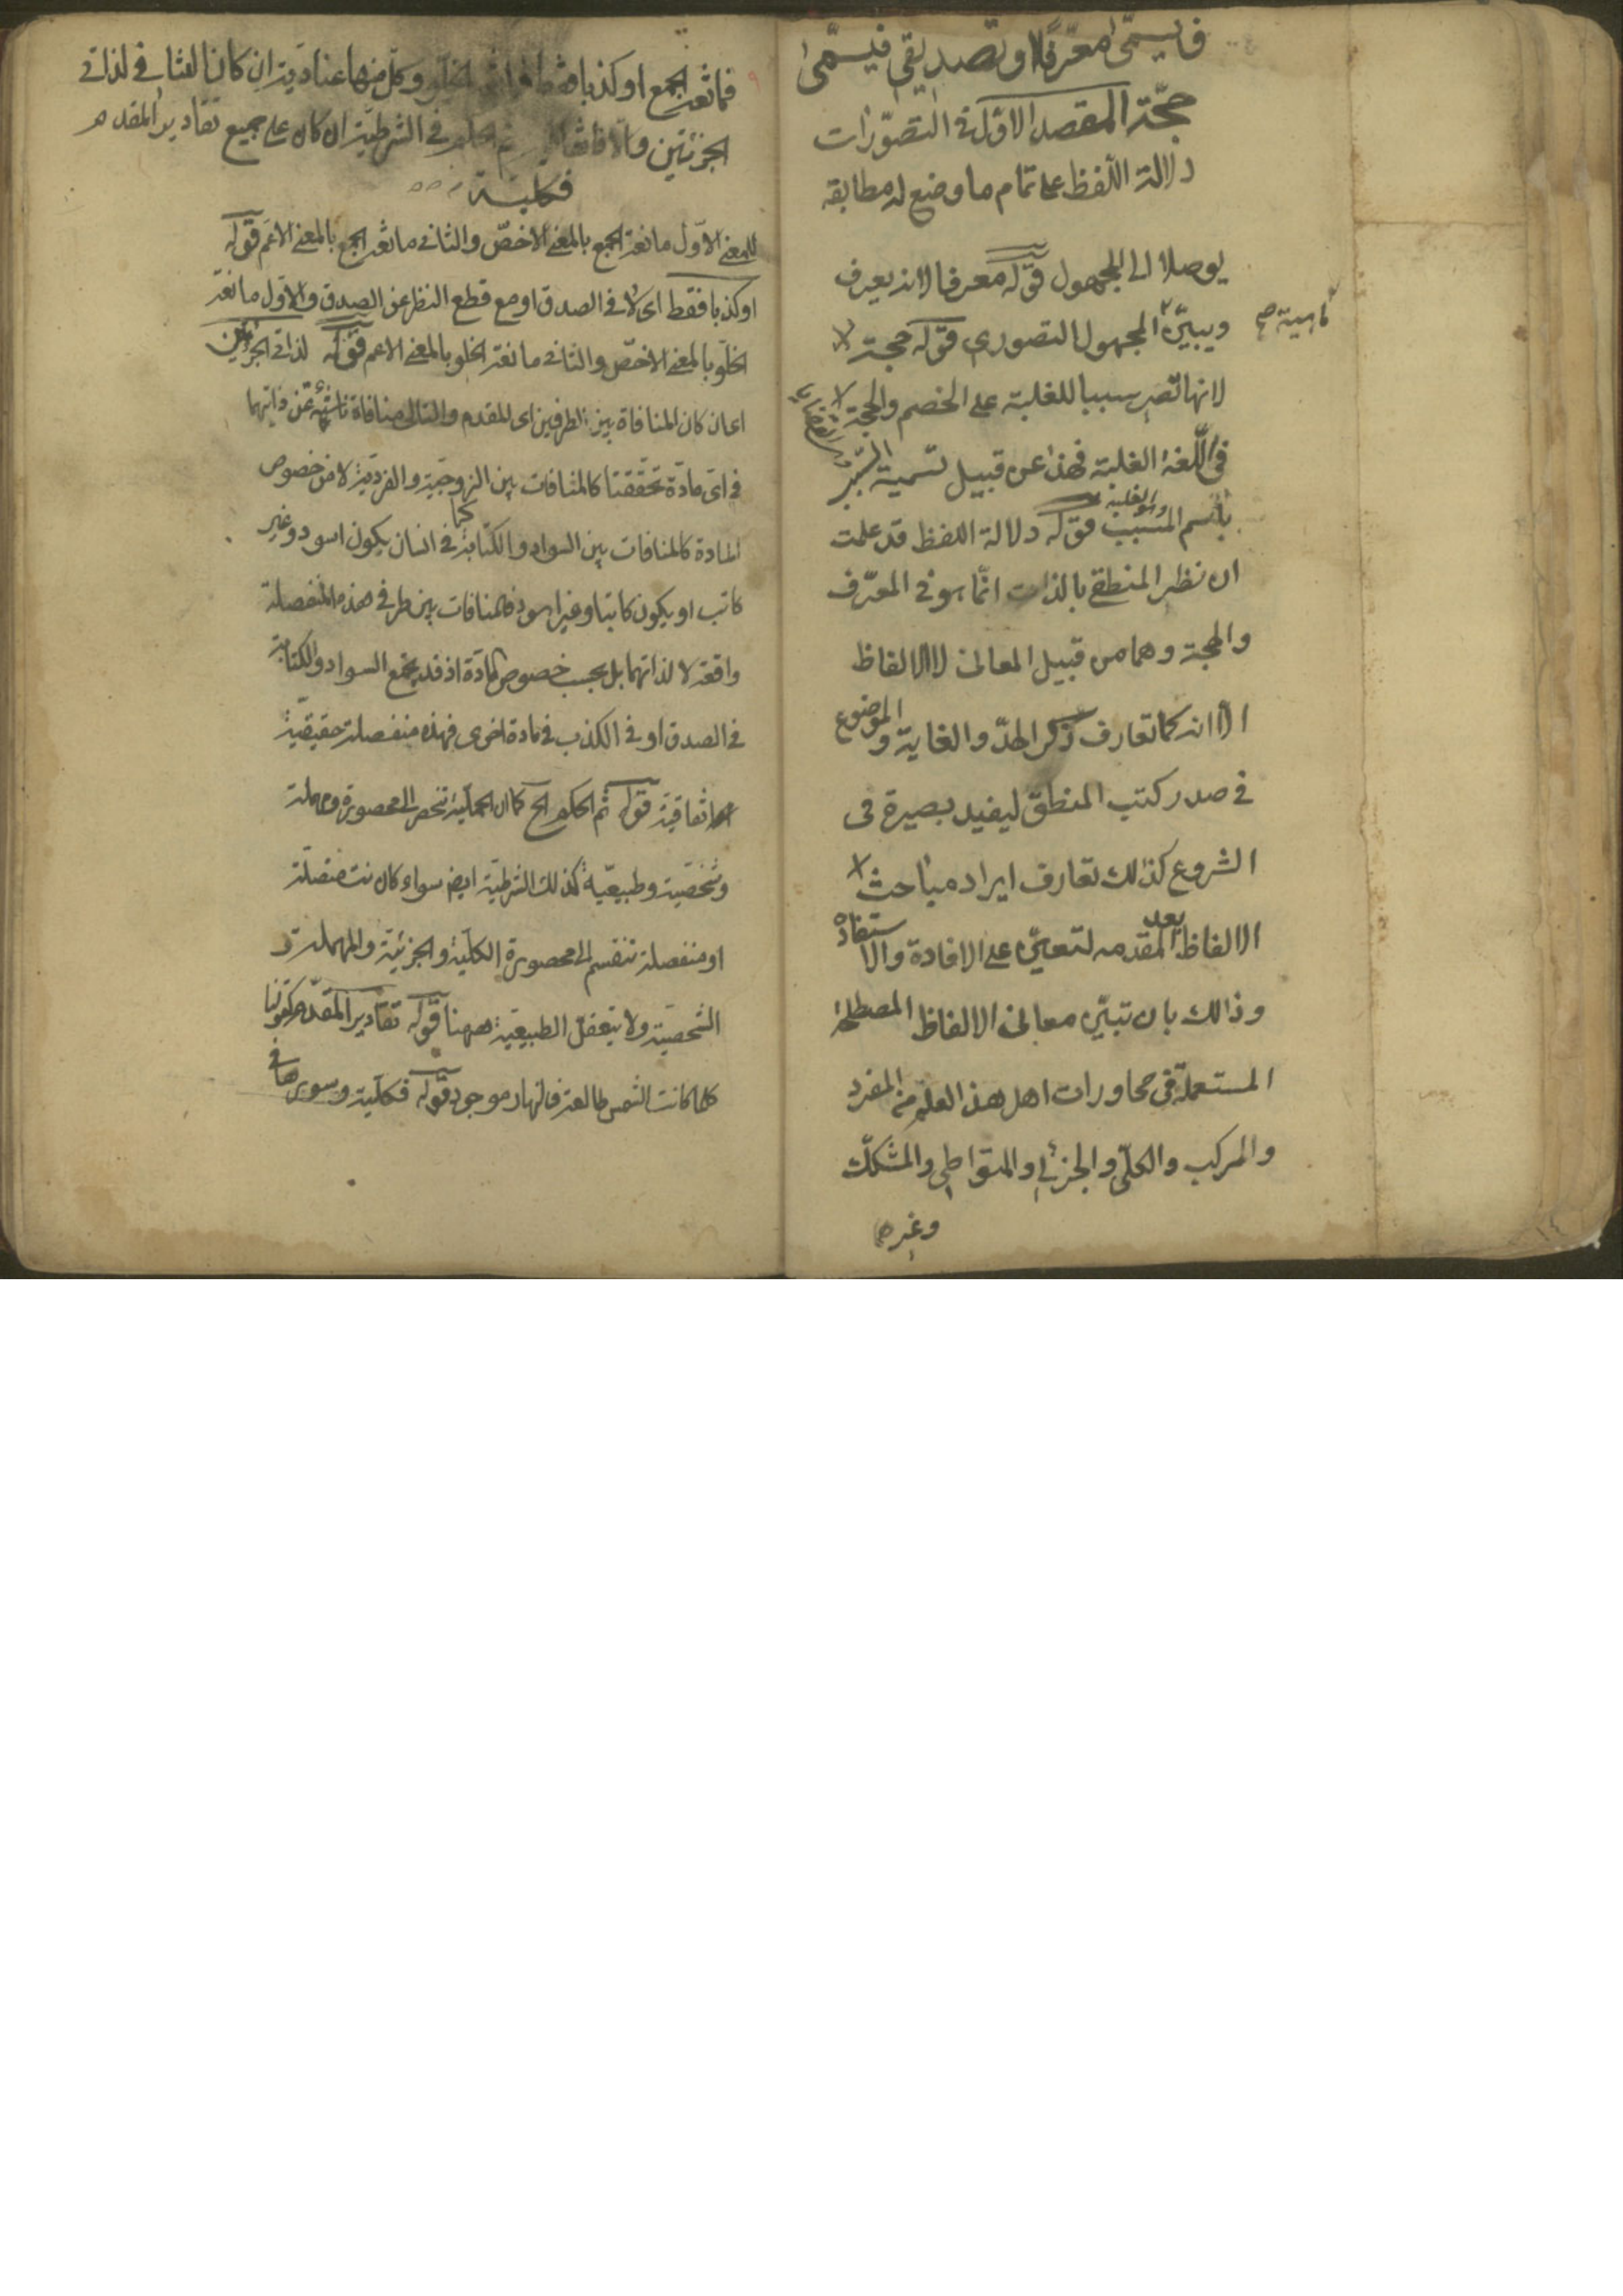 فيسمى معرّفا او تصديقى فيسمّى
حجّة المقصد الاوّل فى التصوّرات
دلالة اللفظ على تمام ما وضع له مطابقه
يوصلا الى المجهول قوله معرفا لانه يعرف
ويبيّن المجهول التصورى قوله حجة
لانها تصير سببا للغلبة على الخصم والحجة
فى اللّغة الغلبة فهذا من قبيل تسمية السبب
باسم المسبب قوله دلالة اللفظ قد علمت
ان نظر المنطقى بالذات انّما هو فى المعرّف
والحجة وهما من قبيل المعانى لا الالفاظ
الا انه كما تعارف ذكر الحدّ والغاية والموضوع
فى صدر كتب المنطق ليفيد بصيرة فى
الشروع كذلك تعارف ايراد مباحث
الالفاظ بعد المقدمه لتعين على الافادة والاستفاده
وذالك بان تبيّن معانى الالفاظ المصطلحة
المستعملة فى محاورات اهل هذ العلم من المفرد
والمركب والكلّى والجزئى والمتواطى والمشكّك
وغيرها
فمانعة الجمع او كذبا فقط فمانعة الخلو وكلّ منها عنادية ان كان التنافى لذاتى
الجزئين والا فاتفاقية ثم الحكم فى الشرطية ان كان على جميع تقادير المقدم
فكلية
للمعنى الاوّل مانعة الجمع بالمعنى الاخصّ والثانى مانعة الجمع بالمعنى الاعم قوله
او كذبا فقط اى لا فى الصدق او مع قطع النظر عن الصدق والاوّل مانعة
الخلّو بالمعنى الاخصّ والثانى مانعة الخلو بالمعنى الاعم قوله لذاتى الجزئين
اى ان كان المنافاة بين الطرفين اى المقدم والتالى منافاة ناشئة عن ذاتيهما
فى اىّ مادّة تحققتا كالمنافات بين الزوجيّة والفرديّة لا من خصوص
المادة كالمنافات بين السواد والكتابة فى انسان يكون اسود وغير
كاتب او يكون كاتبا وغير اسود فالمنافات بين طرفى هذه المنفصلة
واقعة لا لذاتهما بل بحسب خصوص المادّة اذ قد يجمع السواد والكتابة
فى الصدق او فى الكذب فى مادة اخرى فهذه منفصلة حقيقيّة
اتفاقية قوله ثم الحكم الخ كما ان الحملية تنحصر الى محصورة ومهملة
وشخصية وطبيعيّة كذلك الشرطية ايضا سواء كانت متصلة
او منفصلة تنقسم الى محصورة الكلّية والجزئيّة والمهملة و
الشخصية ولا يتعقل الطبيعيّة ههنا قوله تقادير المقدّم كقولنا
كلما كانت الشمس طالعة فالنهار موجود قوله فكلّية وسورها فى